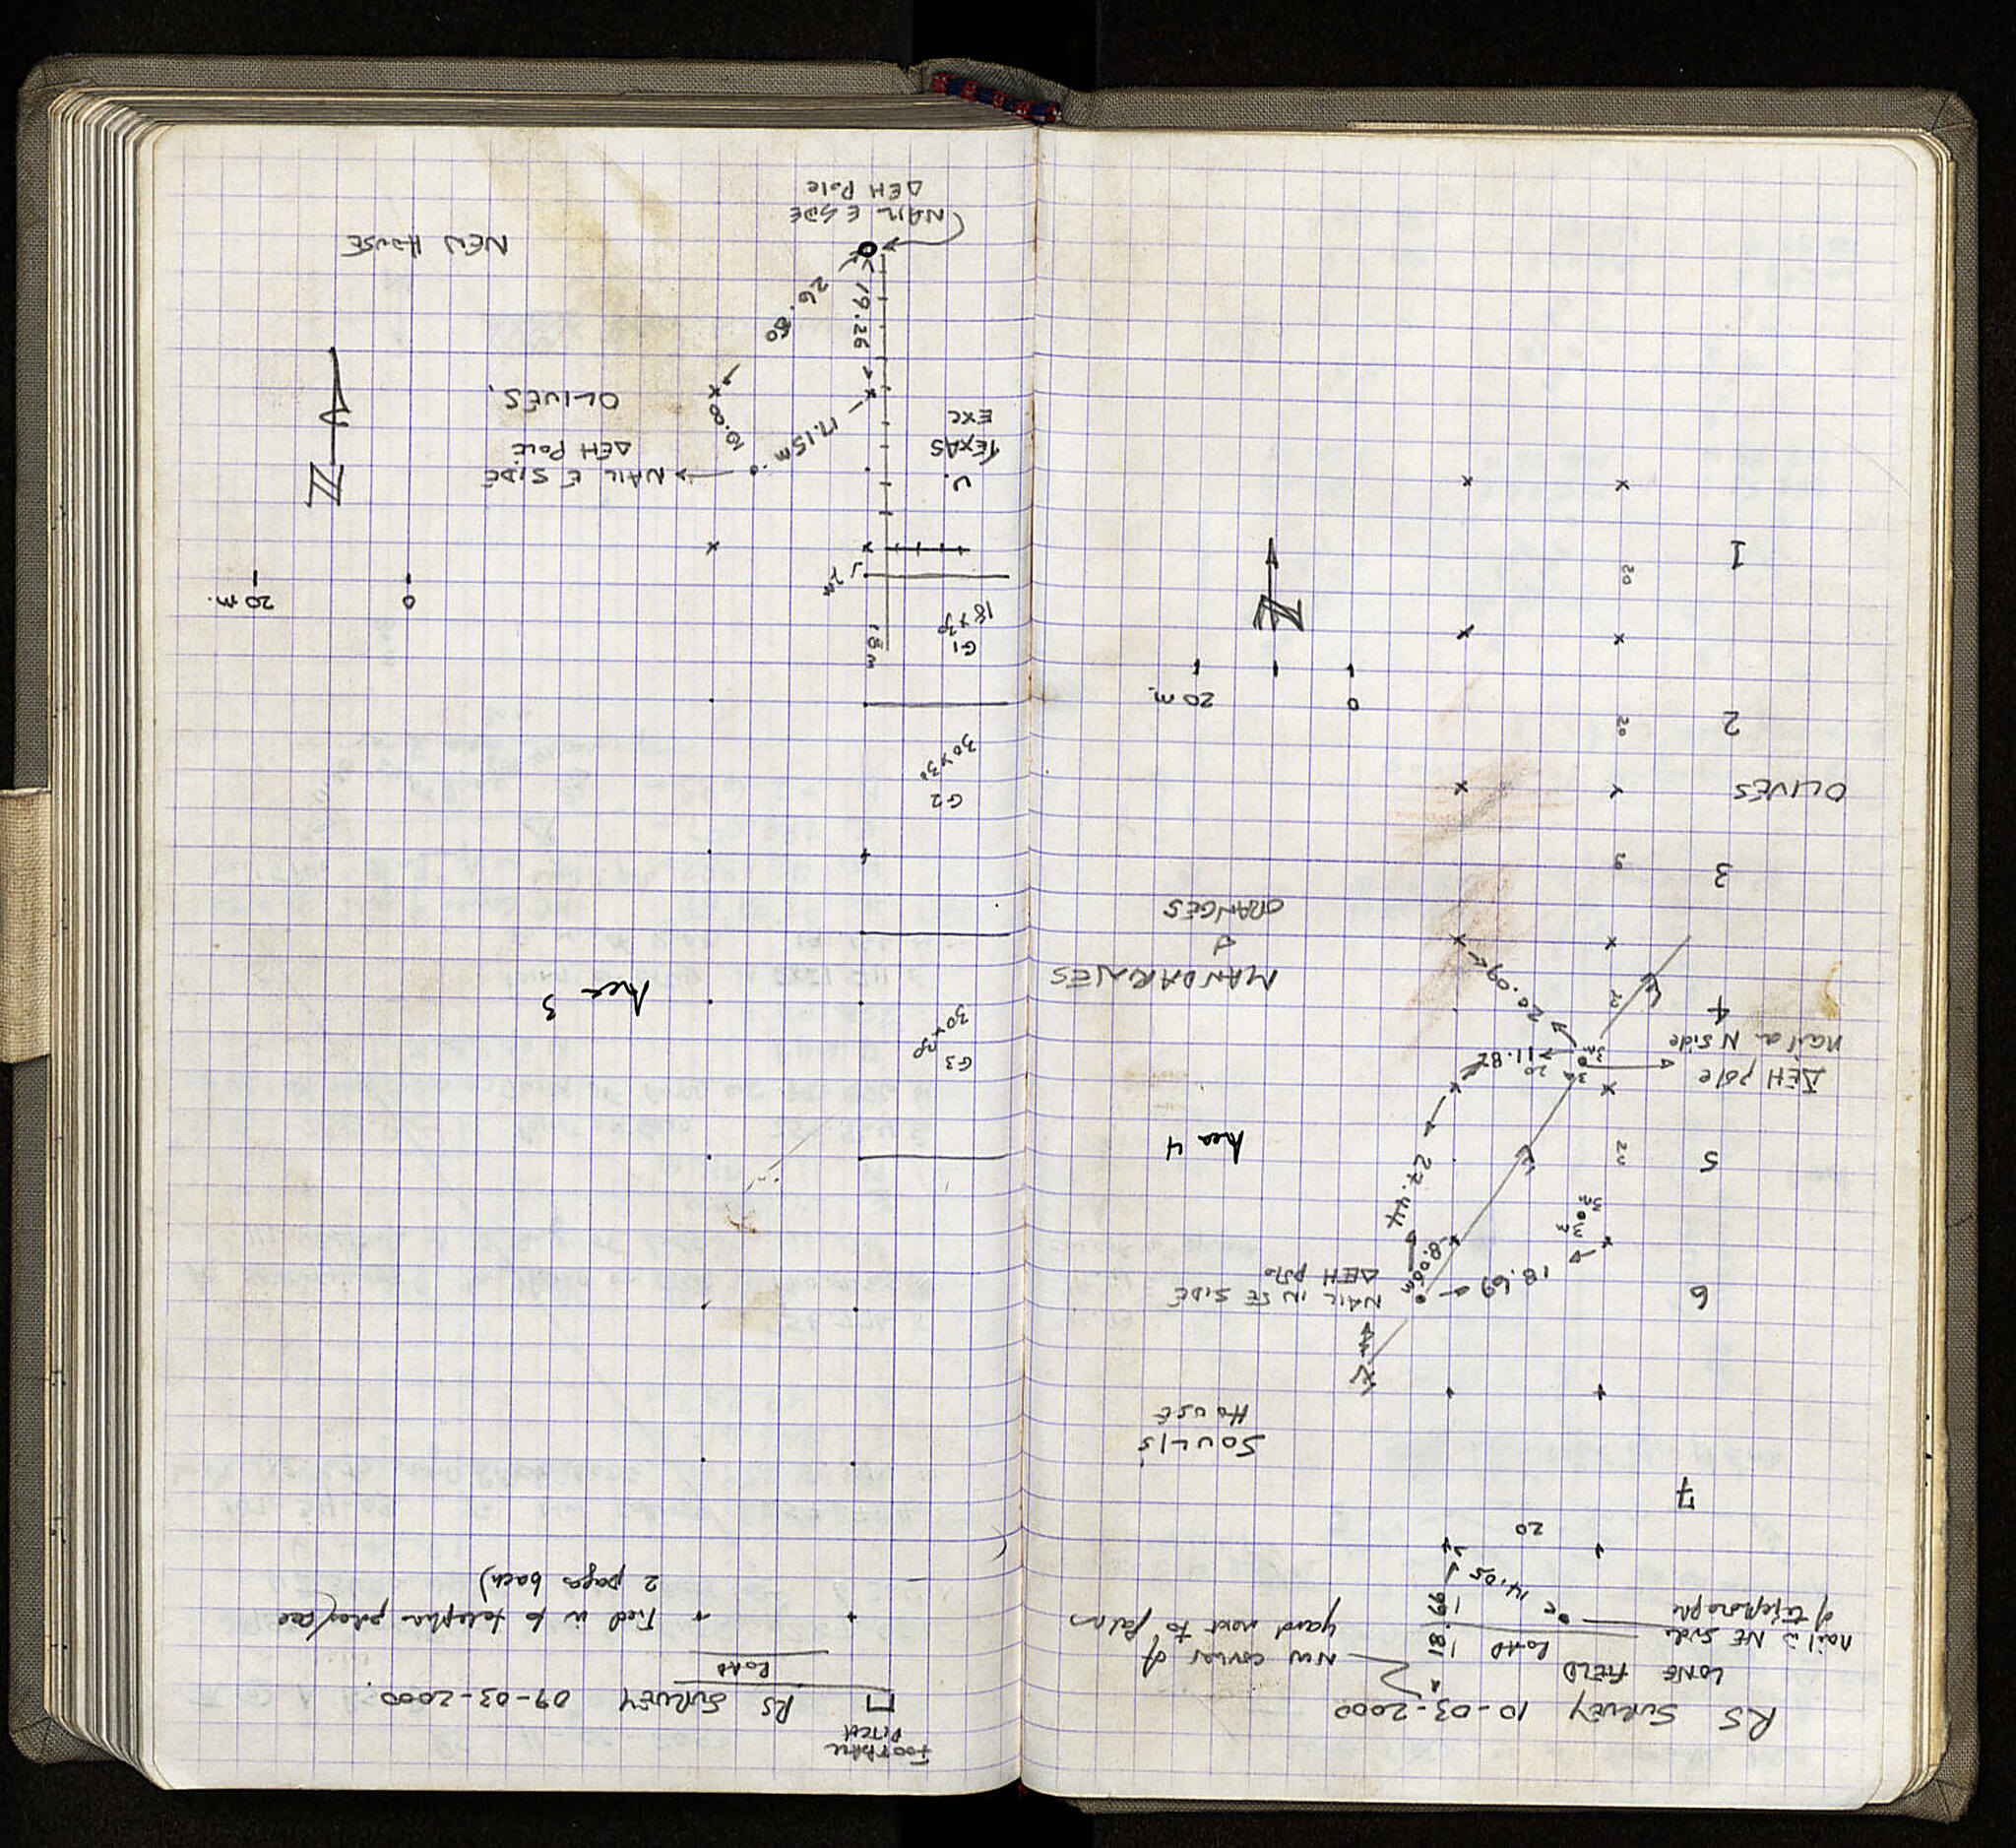 RS SURVEY 10-03-2000
LONG FIELD
NW corner of
yard next to palms
ROAD
1.81
1.99
nail in NE side
of telegraph
14.05
20
7
SOULIS
HOUSE
NAIL IN SE SIDE
ΔEH pole
8.00m
18.69
6
27.44
3m
3m
5
20
Area 4
ΔEH pole
nail on N side
3m
3m
20
11.82
20.09
4
2
MANDARINES
&
ORANGES
3
2
OLIVES
2
20
0
20m.
N
1
20
FOOTBALL
PITCH
RS SURVEY 09-03-2000
ROAD
Tied in to telephone poles (see
2 pages back)
G3
30x30
Area 3
G2
30x30
G1
18x30
18m
2m
0
20m.
N
U.
TEXAS
EXC
NAIL E SIDE
ΔEH Pole
OLIVES.
17.15m
10.00
19.26
26.80
NEW HOUSE
NAIL E SIDE
ΔEH Pole